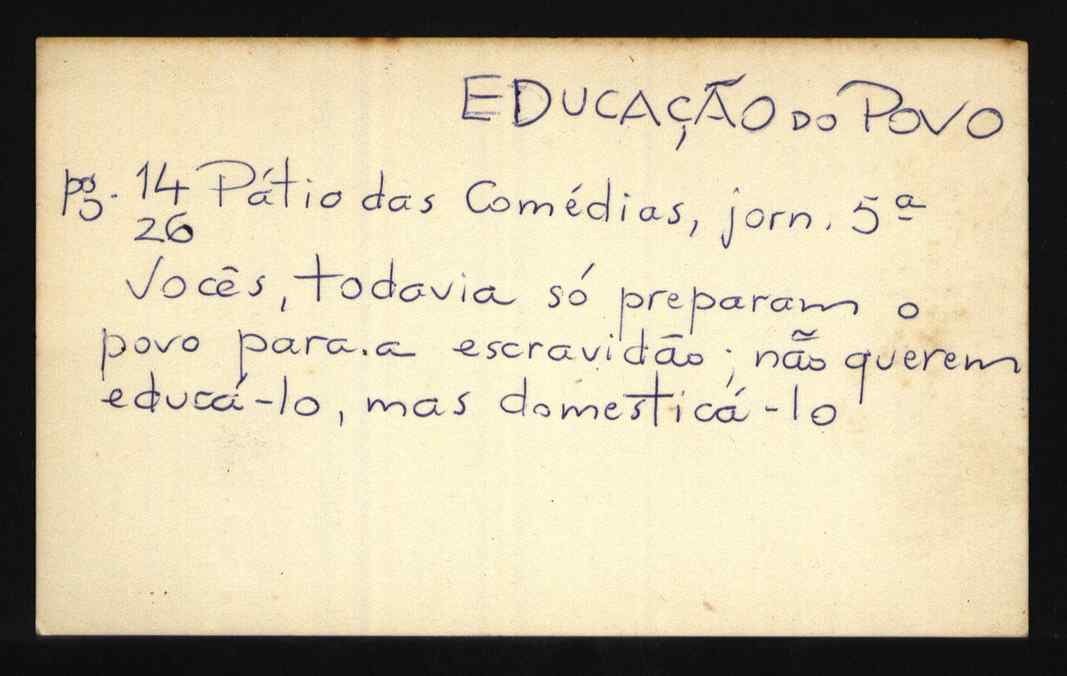 EDUCAÇÃO DO POVO
pg. 14 Pátio das Comédias, jorn. 5ª
26
Vocês, todavia só preparam o
povo para a escravidão; não querem
educá-lo, mas domesticá-lo